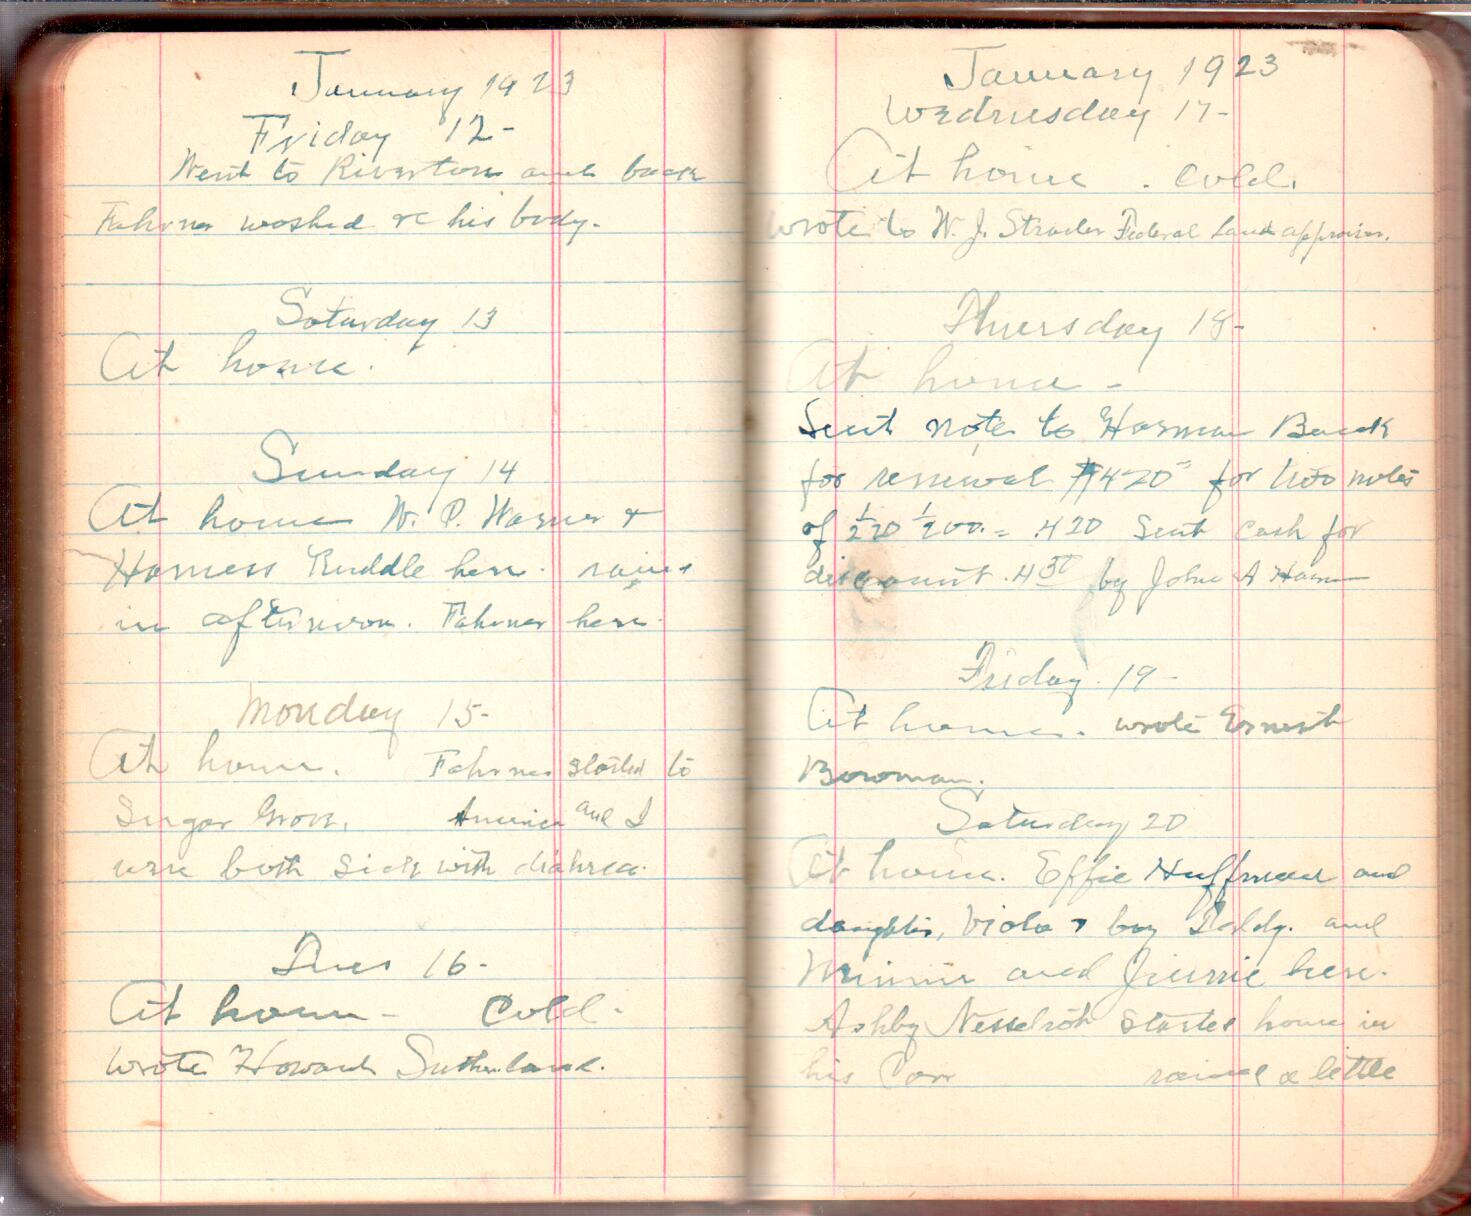 January 1923
Friday 12-
Went to Riverton and back
Fahrner washed &c his body.
Saturday 13
At home.
Sunday 14
At home W. P. Warner &
Harness Ruddle here. rains
in afternoon. Fahrner here.
Monday 15-
At home. Fahrner started to
Sugar Grove. America and I
were both sick with diahrea.
Tues 16-
At home - Cold.
Wrote Howard Sutherland.
January 1923
Wednesday 17-
At home. Cold.
Wrote to W. J. Strader Federal Land appraiser.
Thursday 18-
At home -
Sent note to Harman Bank
for renewal $420 for two notes
of 220 200 = 420 Sent Cash for
discount by John A
Friday 19-
At home. wrote Ernest
Bowman.
Saturday 20
At home. Effie Huffman and
daughter, Viola & boy and
Minnie and Jimmie here.
Ashby Nesselrodt started home in
his Car rained a little